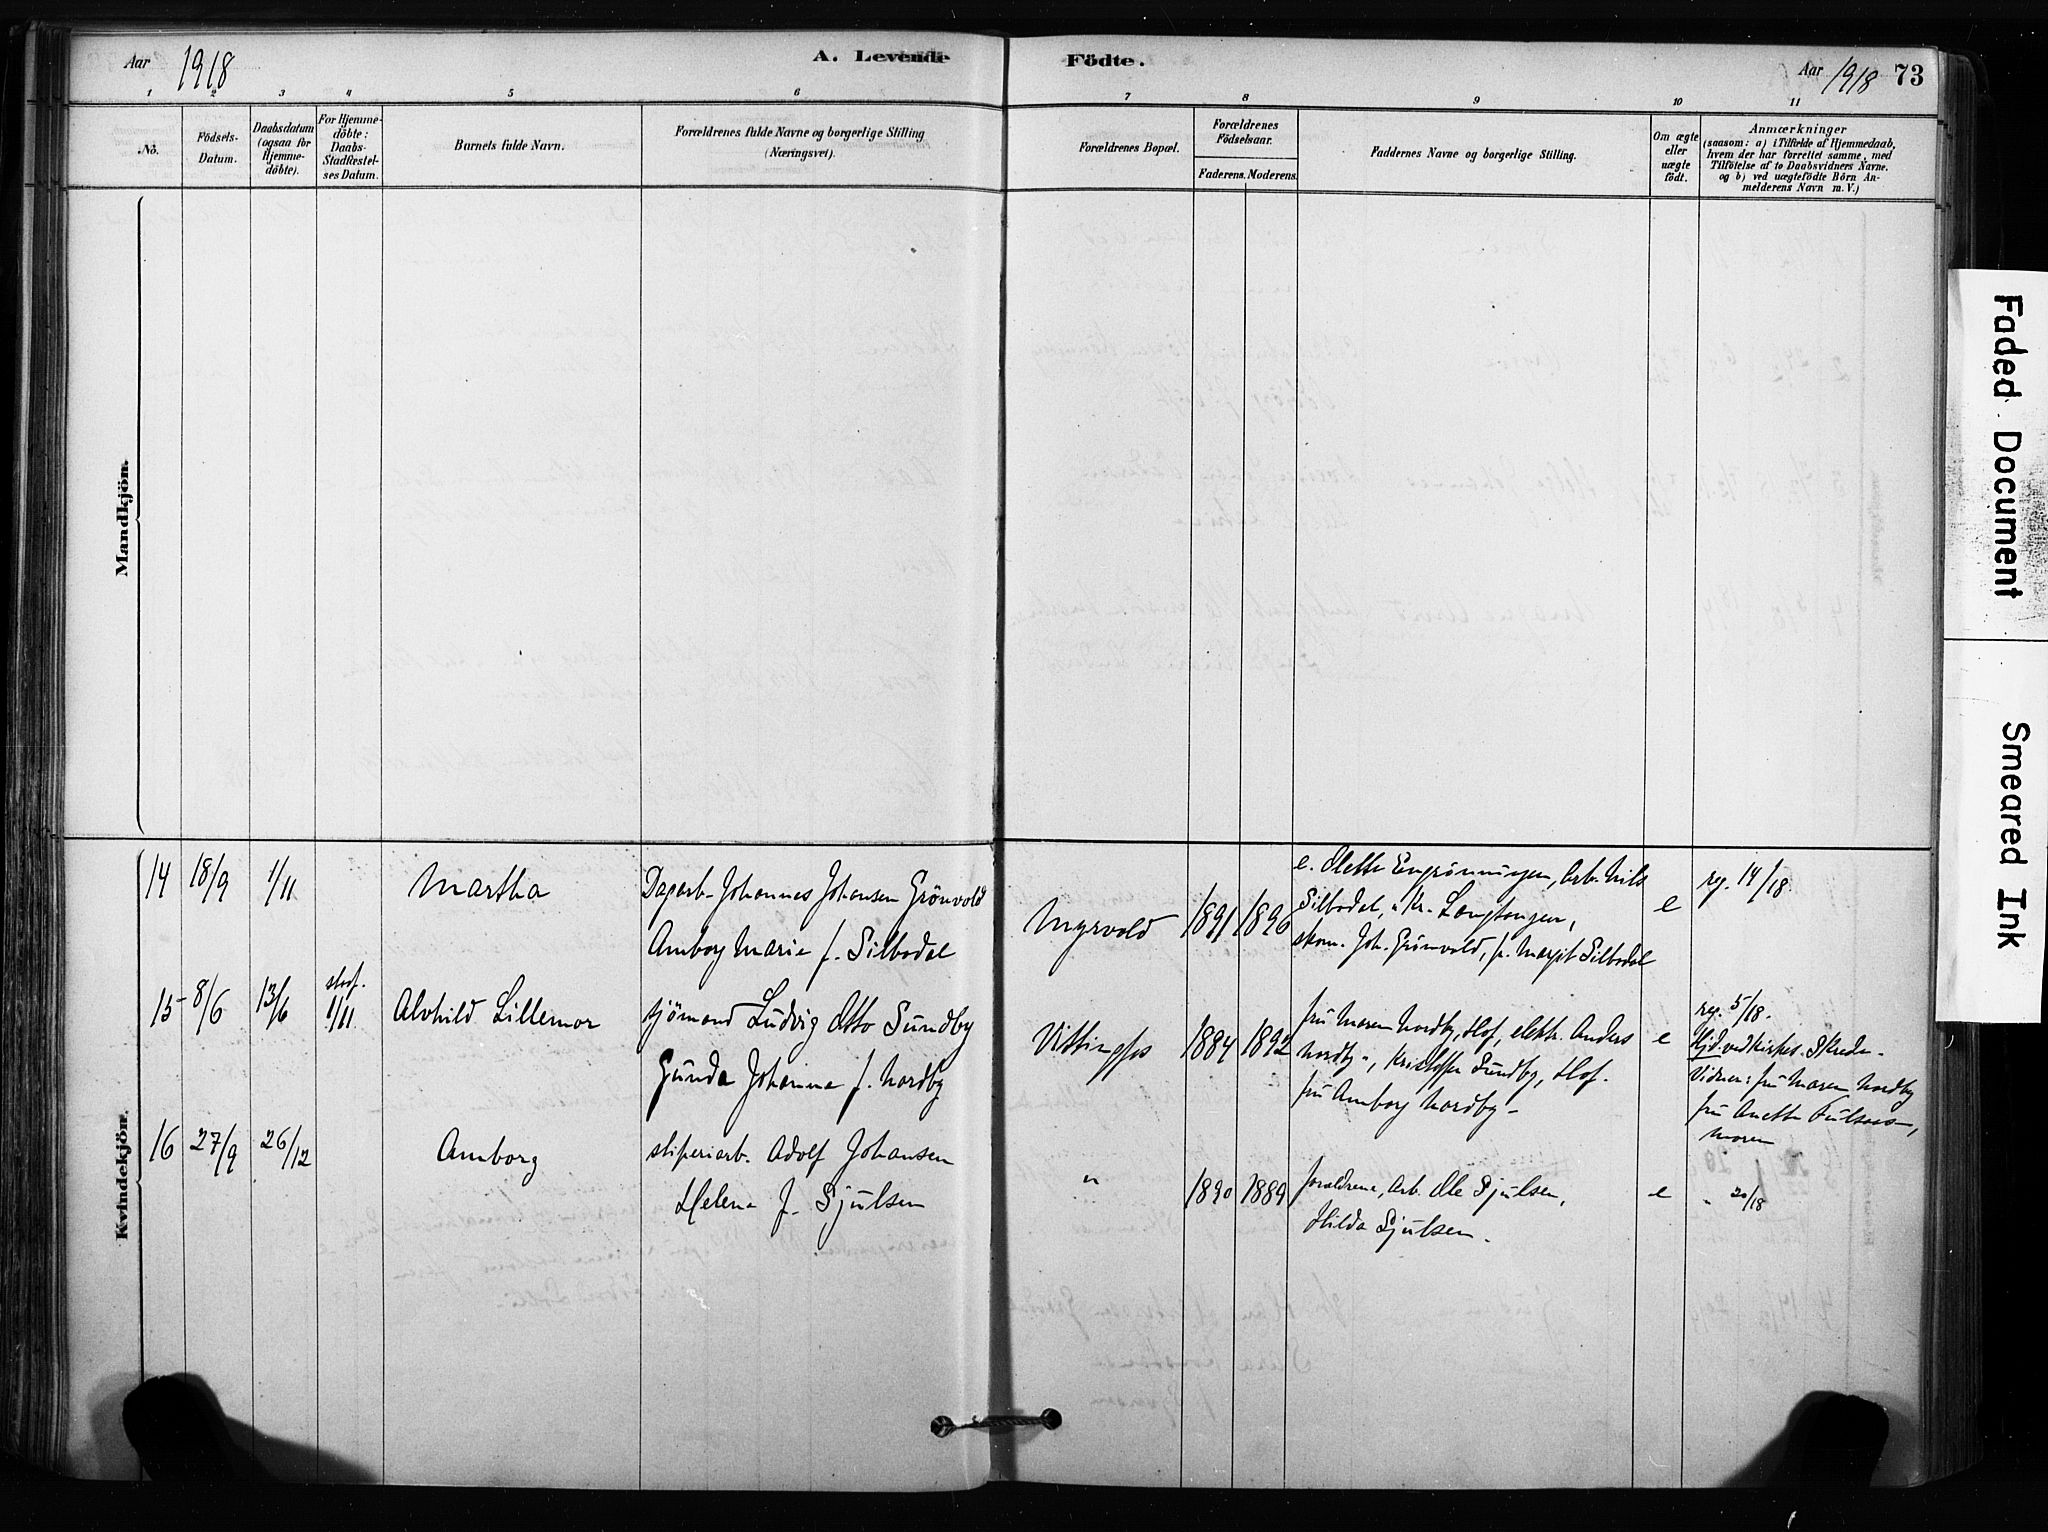 Aar 1918
A. Levende
Födte.
Aar 1918 73
1 2 3 4 5 6 7 8 9 10 11
No.
Födsels-
Datum.
Daabsdatum
(ogsaa for
Hjemme-
döbte).
For Hjemme-
döbte:
Daabs-
Stadfæstel-
ses Datum.
Barnets fulde Navn.
Forældrenes fulde Navne og borgerlige Stilling
(Næringsvei).
Forældrenes Bopæl.
Forældrenes
Födselsaar.
Faderens. Moderens.
Faddernes Navne og borgerlige Stilling.
Om ægte
eller
uægte
födt.
Anmærkninger
(saasom: a) i Tilfælde af Hjemmedaab,
hvem der har forrettet samme, med
Tilföielse af to Daabsvidners Navne,
og b) ved uægtefödte Börn An-
melderens Navn m. V.)
Mandkjön.
Kvindekjön.
14 18/9 1/11 Martha
Dagarb. Johannes Johansen Grönvold
Amborg Marie f. Silbodal
Myrvold 1891 1896
e. Olette Engrønningen, Arb. Nils
Silbodal, " Kr. Langtangen,
skom. Joh. Grönvold, p. Margit Silbodal
e
reg. 14/18
15 8/6 13/6 1/11 Alvhild Lillemor
sjömand Ludvig Otto Sundby
Gunda Johanna f. Nordby
Vittingfos 1884 1892
fru Maren Nordby, Hof, elektr. Anders
Nordby ", Kristoffer Sundby, Hof.
fru Amborg Nordby -
e
reg. 5/18.
Hjd. ved Skrede.
Vidner: fru Maren Nordby
fru Anette
16 27/9 26/12 Amborg
sliperiarb. Adolf Johansen
Helena f. Sjulsen
" 1890 1889
forældrene, Arb. Ole Sjulsen,
Hilda Sjulsen.
e
" 20/18
Faded Document
Smeared Ink